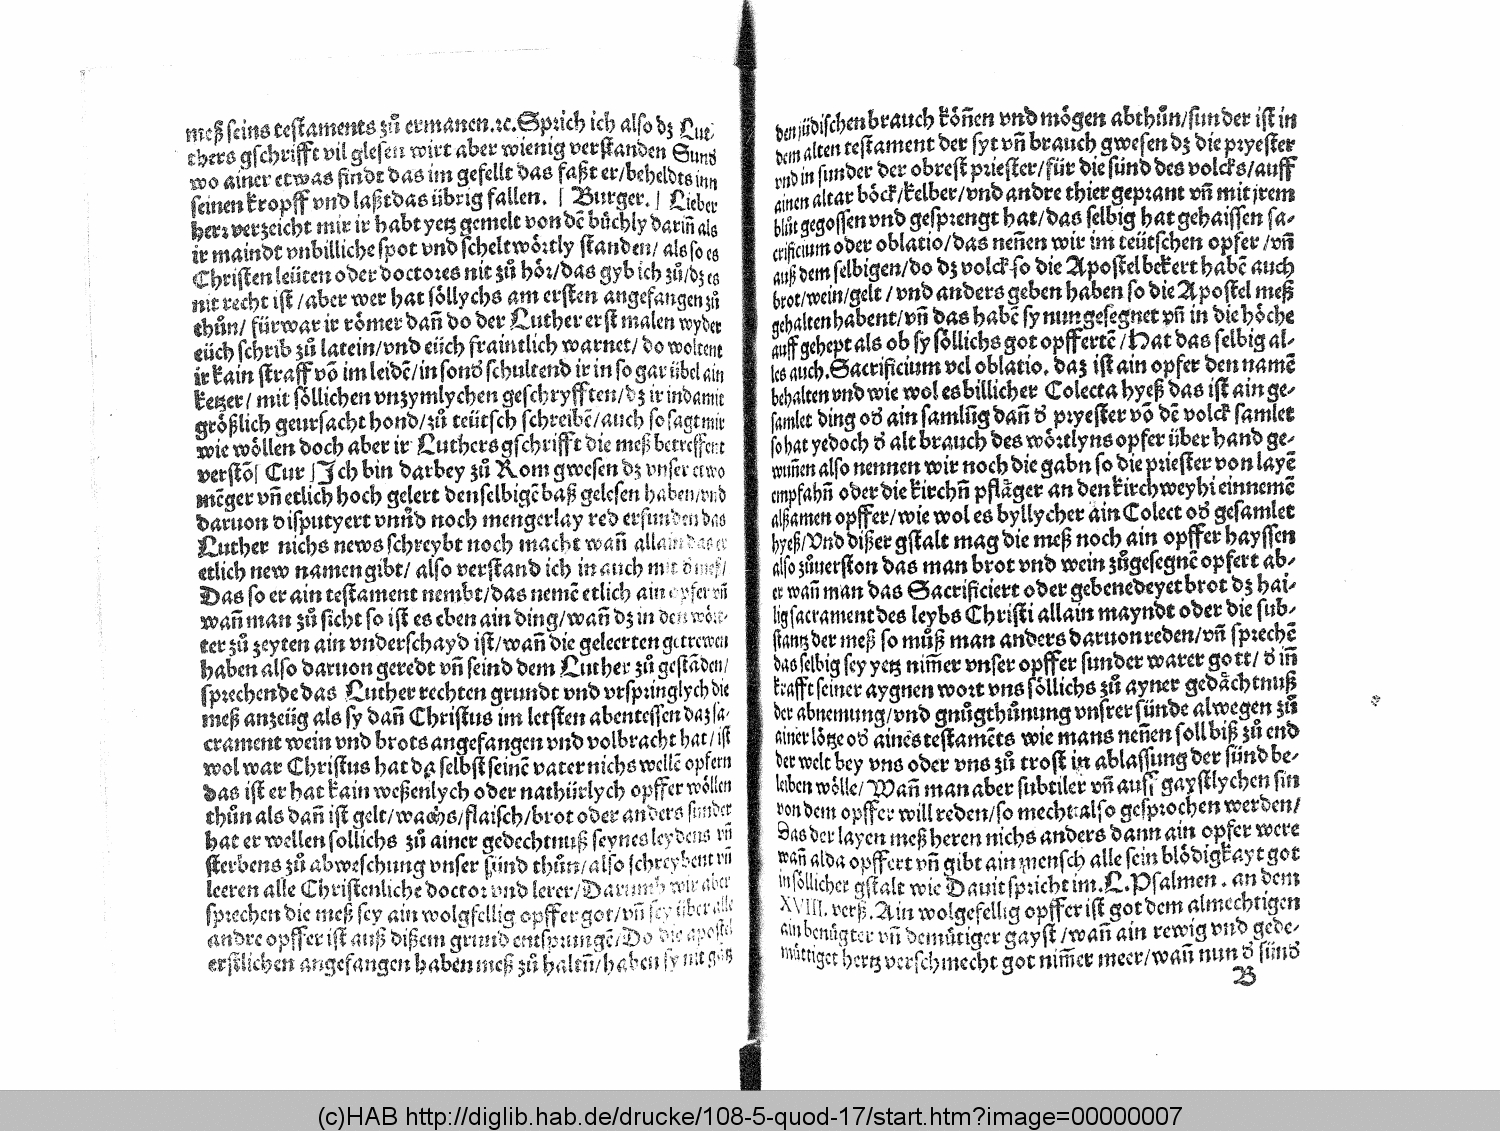 meß seins testaments zů ermanen.ꝛc. Sprich ich also dz Lut-
thers gschrifft vil glesen wirt aber wienig verstanden Suns
wo ainer etwas findt das im gefellt das faßt er/beheldts inn
seinen kropff vnd laßt das übrig fallen. | Burger. | Lieber
herr verzeicht mir ir habt yetz gemelt von dē bůchly dariñ als
ir maindt vnbilliche spot vnd schelt wörtly standen/ als so es
Christen leüten oder doctores nit zů hör/das gyb ich zů/dz es
nit recht ist/aber wer hat söllychs am ersten angefangen zů
thůn/ fürwar ir römer dañ do der Luther erst malen wyder
eüch schrib zů latein/vnd eüch fraintlich warnet/ do woltent
ir kain straff vō im leidē/in sonds schultend ir in so gar übel ain
ketzer/ mit söllichen vnzymlychen geschryfften/dz ir in damit
größlich geursacht hond/zů teütsch schreibē/auch so sagt mir
wie wöllen doch aber ir Luthers gschrifft die meß betreffent
verstō| Cur | Ich bin darbey zů Rom gwesen dz vnser etwo
mēger vñ etlich hoch gelert denselbigē baß gelesen haben/vnd
daruon disputyert vnnd noch mengerlay red erfunden das
Luther nichs news schreybt noch macht wañ allain das er
etlich new namen gibt/ also verstand ich in auch mit d meß/
Das so er ain testament nembt/das nemē etlich ain opfer vñ
wañ man zů sicht so ist es eben ain ding/wañ dz in den wör-
ter zů zeyten ain vnderschayd ist/wañ die geleerten getrewen
haben also daruon geredt vñ seind dem Luther zů gestāden/
sprechende das Luther rechten grundt vnd vrspringlych die
meß anzeüg als sy dañ Christus im letsten abentessen daz sa-
crament wein vnd brots angefangen vnd volbracht hat/ist
wol war Christus hat da selbst seinē vater nichs wellē opfern
das ist er hat kain weßenlych oder nathürlych opffer wöllen
thůn als dañ ist gelt/wachs/flaisch/brot oder anders sunder
hat er wellen sollichs zů ainer gedechtnuß seynes leydens vñ
sterbens zů abweschung vnser sünd thůn/also schreybent vñ
leeren alle Christenliche doctor vnd lerer/Darumb wir aber
sprechen die meß sey ain wolgfellig opffer got/vñ sey über alle
andre opffer ist auß dißem grund entsprungē/Do die apostel
erstlichen angefangen haben meß zů haltñ/haben sy nit gātz
den jüdischen brauch köñen vnd mögen abthůn/sunder ist in
dem alten testament der syt vñ brauch gwesen dz die pryester
vnd in sunder der obrest priester/für die sünd des volcks/auff
ainen altar böck/kelber/vnd andre thier geprant vñ mit jrem
blůt gegossen vnd gesprengt hat/das selbig hat gehaissen sa-
crificium oder oblatio/das neñen wir im teütschen opfer/vñ
auß dem selbigen/do dz volck so die Apostel bekert habē auch
brot/wein/gelt/vnd anders geben haben so die Apostel meß
gehalten habent/vñ das habē sy nun gesegnet vñ in die höche
auff gehept als ob sy söllichs got opffertē/Hat das selbig al-
les auch. Sacrificium vel oblatio. daz ist ain opfer den namē
behalten vnd wie wol es billicher Colecta hyeß das ist ain ge-
samlet ding od ain samlūg dañ d pryester vō dē volck samlet
so hat yedoch d alt brauch des wörtlyns opfer über hand ge-
wuñen also nennen wir noch die gabn so die priester von layē
empfahñ oder die kirchñ pfläger an den kirchweyhi einnemē
alßamen opffer/wie wol es byllycher ain Colect od gesamlet
hyeß/Vnd dißer gstalt mag die meß noch ain opffer hayssen
also zůuerston das man brot vnd wein zůgesegnē opfert ab-
er wañ man das Sacrificiert oder gebenedeyet brot dz hai-
lig sacrament des leybs Christi allain mayndt oder die sub-
stantz der meß so můß man anders daruon reden/vñ sprechē
das selbig sey yetz nim̄er vnser opffer sunder warer gott/ d iñ
krafft seiner aygnen wort vns söllichs zů ayner gedächtnuß
der abnemung/vnd gnůgthůnung vnsrer sünde alwegen zů
ainer lötze od ainēs testamēts wie mans neñen soll biß zů end
der welt bey vns oder vns zů trost in ablassung der sünd be-
leiben wölle/ Wañ man aber subtiler vñ auff gaystlychen sin
von dem opffer will reden/so mecht also gesprochen werden/
Das der layen meß heren nichs anders dann ain opfer were
wañ alda opffert vñ gibt ain mensch alle sein blödigkayt got
in söllicher gstalt wie Dauit spricht im. L. Psalmen. an dem
XVIII. verß. Ain wolgefellig opffer ist got dem almechtigen
ain benügter vñ demütiger gayst/wañ ain rewig vnd gede-
müttiget hertz verschmecht got nim̄er meer/wañ nun d sünd
B
(c)HAB http://diglib.hab.de/drucke/108-5-quod-17/start.htm?image=00000007